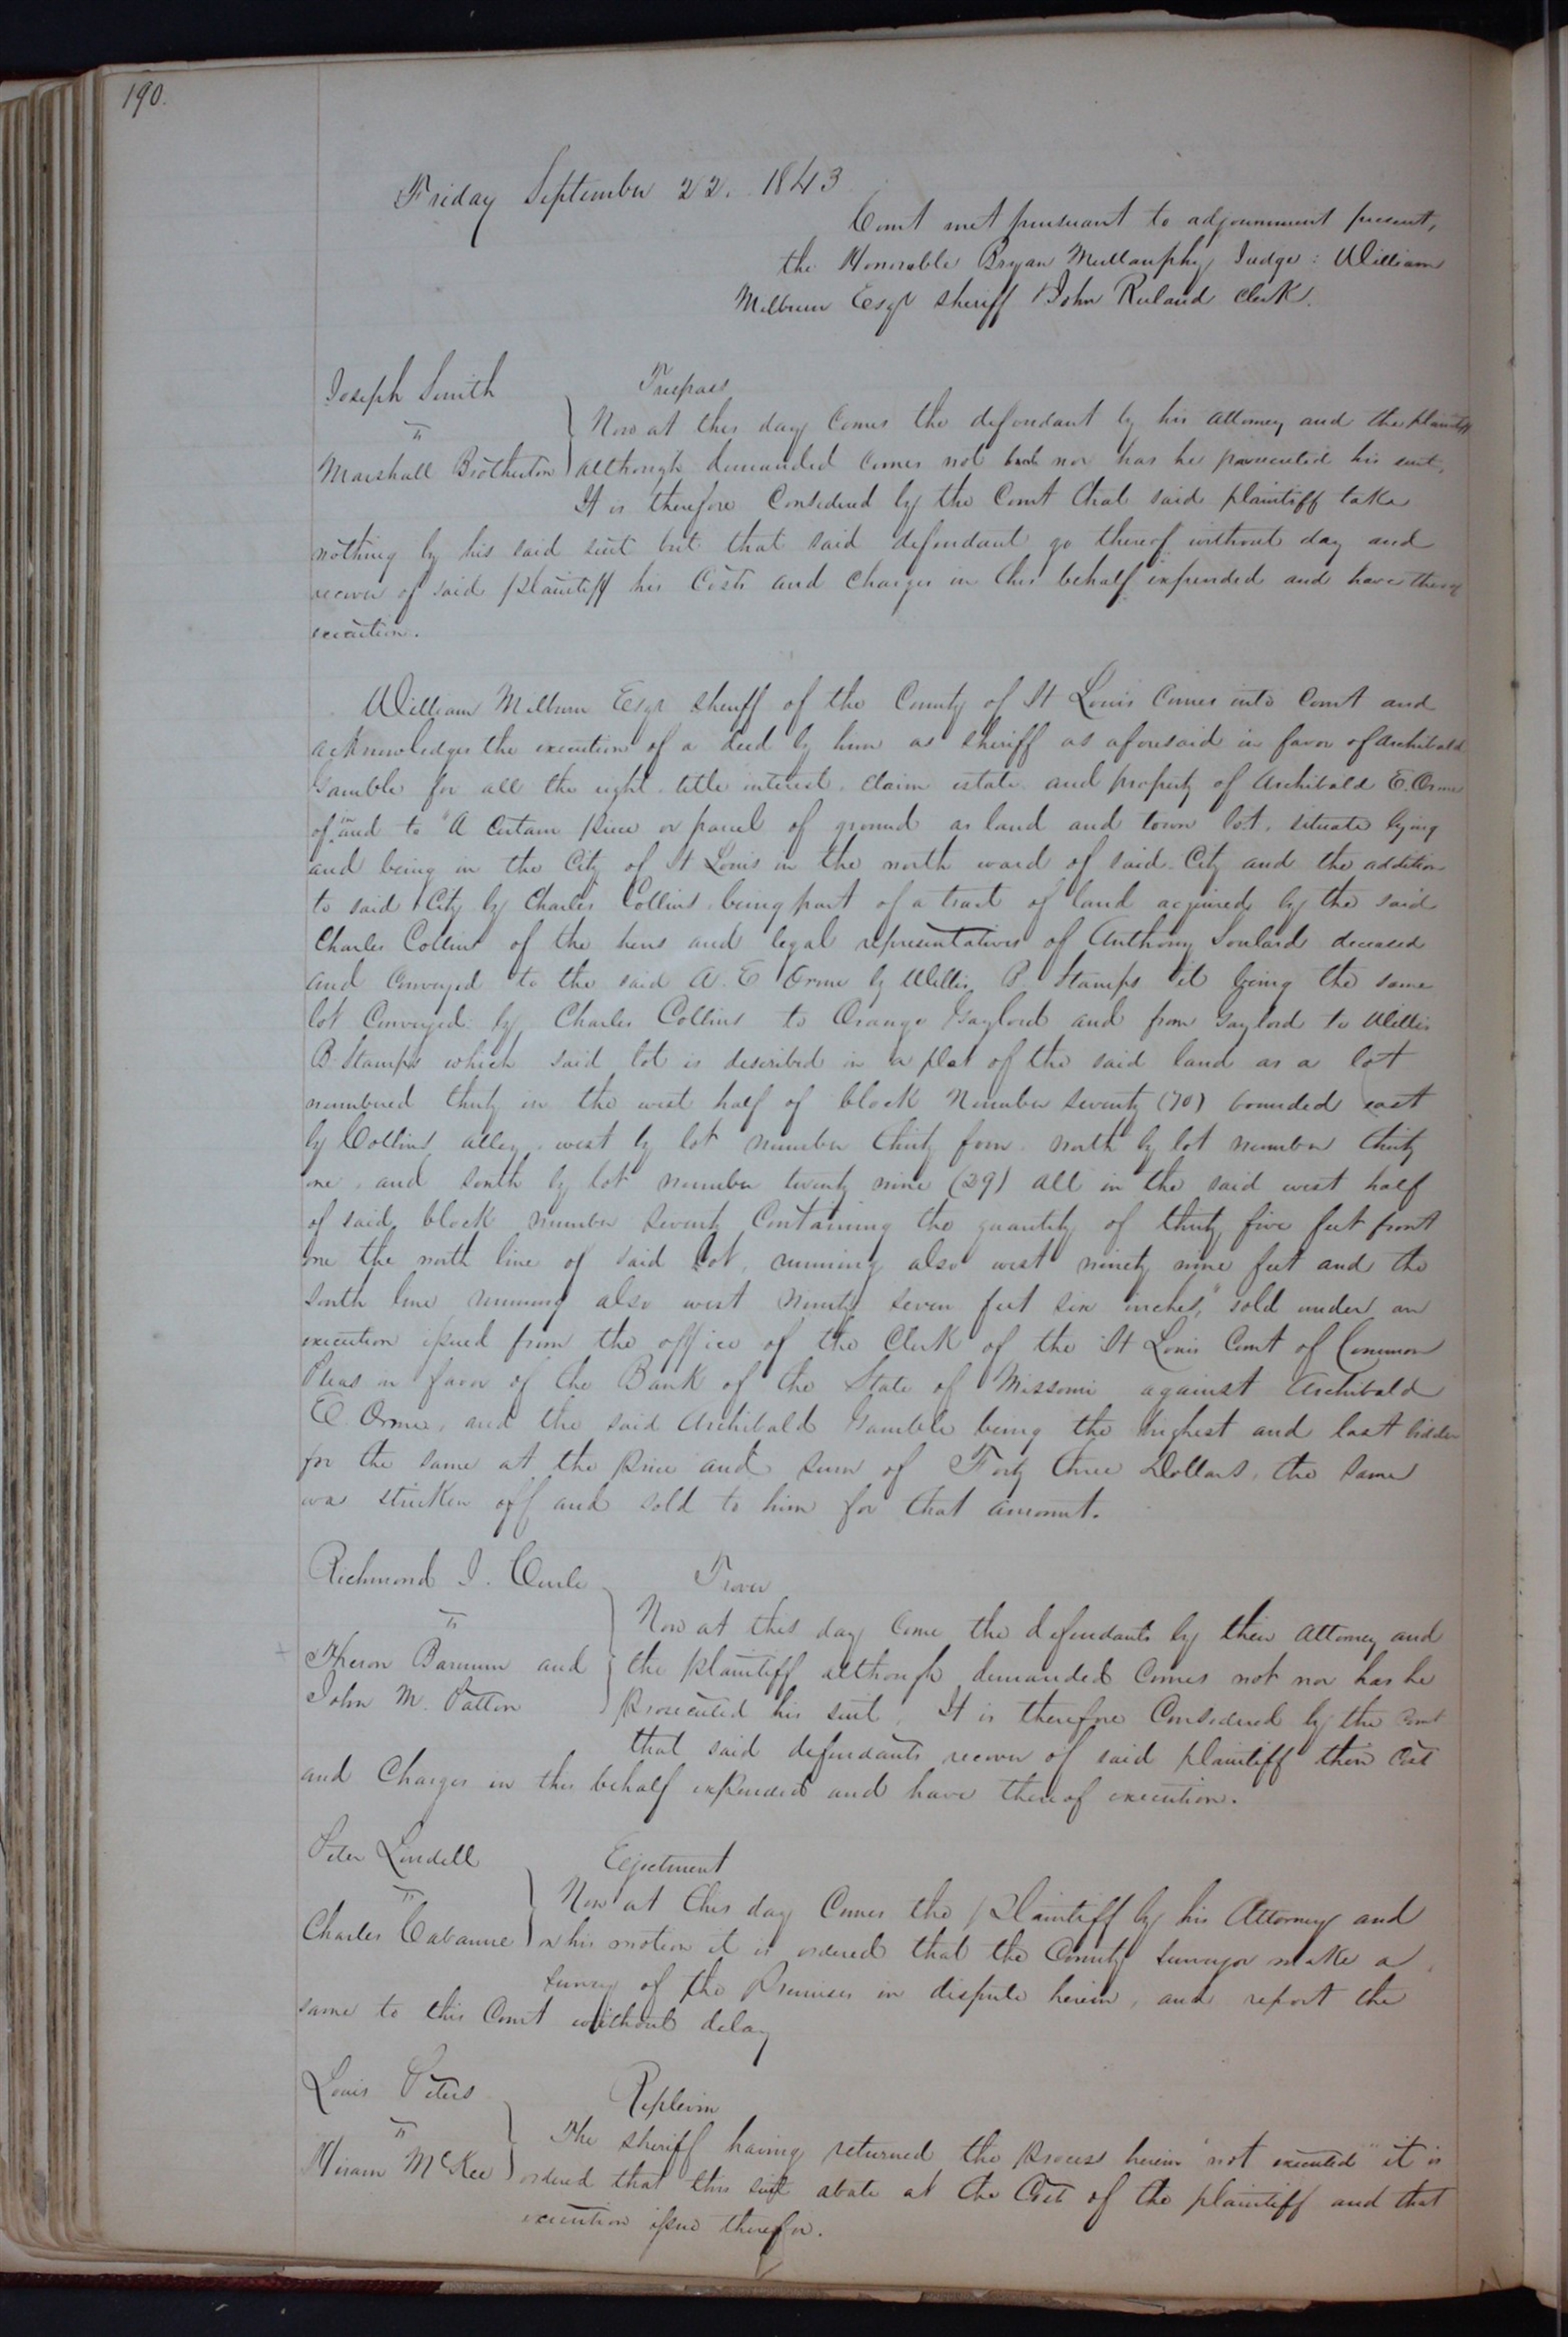 190.
Friday September 22. 1843.
Court met pursuant to adjournment present,
the Honorable Bryan Mullanphy Judge: William
Milburn Esqr Sheriff & John Ruland Clerk.
Joseph Smith
Trespass
vs
Now at this day Comes the defendant by his attorney and the plaintiff
Marshall Brotherton
although demanded comes not nor has he prosecuted his suit,
It is therefore Considered by the Court that said plaintiff take
nothing by his said suit but that said defendant go thereof without day and
recover of said plaintiff his Costs and Charges in this behalf expended and have thereof
execution.
William Milburn Esqr Sheriff of the County of St Louis Comes into Court and
acknowledges the execution of a deed by him as Sheriff as aforesaid in favor of Archibald
Gamble for all the right title interest, claim estate and property of Archibald E. Orme
of in and to "A Certain piece or parcel of ground as land and town lot, situate lying
and being in the City of St Louis in the north ward of said City and the addition
to said City by Charles Collins being part of a tract of land acquired by the said
Charles Collins of the heirs and legal representatives of Anthony Soulard deceased
and Conveyed to the said A. E Orme by Willis B. Stamps it being the same
lot Conveyed by Charles Collins to Orange Gaylord and from Gaylord to Willis
B Stamps which said lot is described in a plat of the said land as a lot
numbered thirty in the west half of block Number Seventy (70) bounded east
by Collins alley, west by lot number thirty four north by lot number thirty
one, and South by lot number twenty nine (29) all in the said west half
of said block number Seventy Containing the quantity of thirty five feet front
one the north line of said Lot, running also west ninety nine feet and the
South line running also west ninety seven feet six inches," sold under an
execution issued from the office of the Clerk of the St Louis Court of Common
Pleas in favor of the Bank of the State of Missouri against Archibald
E. Orme, and the said Archibald Gamble being the highest and last bidder
for the same at the price and sum of Forty three Dollars, the same
was stricken off and sold to him for that amount.
Richmond J. Curle
Trover
vs
Now at this day Come the defendants by their attorney and
Theron Barnum and
the plaintiff although demanded Comes not nor has he
John M. Patton
prosecuted his suit, It is therefore Considered by the Court
that said defendants recover of said plaintiff their Cost
and Charges in this behalf expended and have thereof execution.
Peter Lindell
Ejectment
vs
Now at this day Comes the Plaintiff by his Attorney and
Charles Cabanne
on his motion it is ordered that the County Surveyor make a
Survey of the Premises in dispute herein, and report the
same to this Court without delay
Louis Peters
Replevin
vs
The Sheriff having returned the process herein "not executed" it is
Hiram McKee
ordered that this suit abate at the Cost of the plaintiff and that
execution issue therefor.